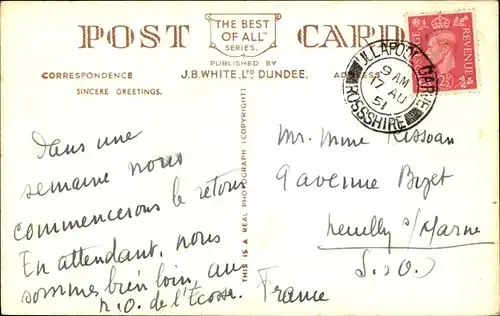 POST CARD
THE BEST
OF ALL
SERIES.
PUBLISHED BY
J.B. WHITE, LTD DUNDEE.
CORRESPONDENCE
ADDRESS
SINCERE GREETINGS.
POSTAGE REVENUE
ULLAPOOL GARVE
9 AM
17 AU
51
ROSSSHIRE
THIS IS A REAL PHOTOGRAPH (COPYRIGHT)
Dans une
semaine nous
commencerons le retour
En attendant, nous
sommes bien loin, au
N.O. de l'Ecosse.
Mr. Mme Kissoan
9 avenue Bizet
Neuilly s/Marne
S. & O.
France